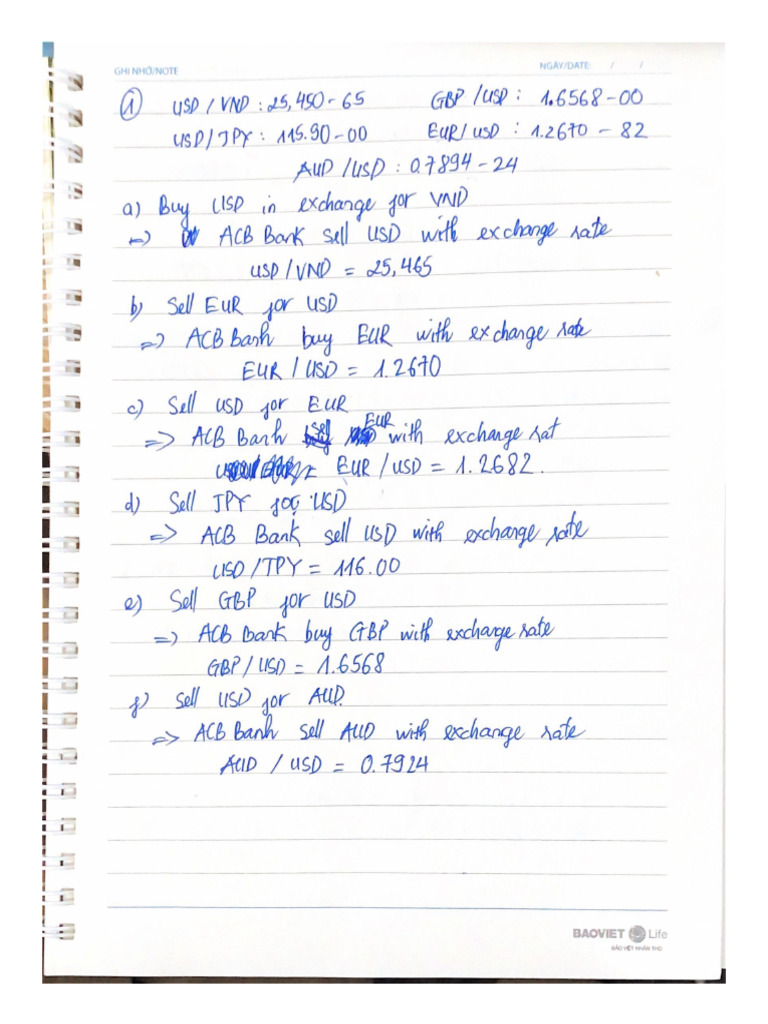 GHI NHỚ/NOTE NGÀY/DATE: / /
① USD / VND : 25,450 - 65 GBP / USD : 1.6568 - 00
USD / JPY : 115.90 - 00 EUR / USD : 1.2670 - 82
AUD / USD : 0.7894 - 24
a) Buy USD in exchange for VND
=> ACB Bank sell USD with exchange rate
USD / VND = 25,465
b) Sell EUR for USD
=> ACB Bank buy EUR with exchange rate
EUR / USD = 1.2670
c) Sell USD for EUR
=> ACB Bank sell EUR with exchange rat
EUR / USD = 1.2682.
d) Sell JPY for USD
=> ACB Bank sell USD with exchange rate
USD / JPY = 116.00
e) Sell GBP for USD
=> ACB Bank buy GBP with exchange rate
GBP / USD = 1.6568
f) Sell USD for AUD.
=> ACB Bank sell AUD with exchange rate
AUD / USD = 0.7924
BAOVIET Life
BẢO VIỆT NHÂN THỌ